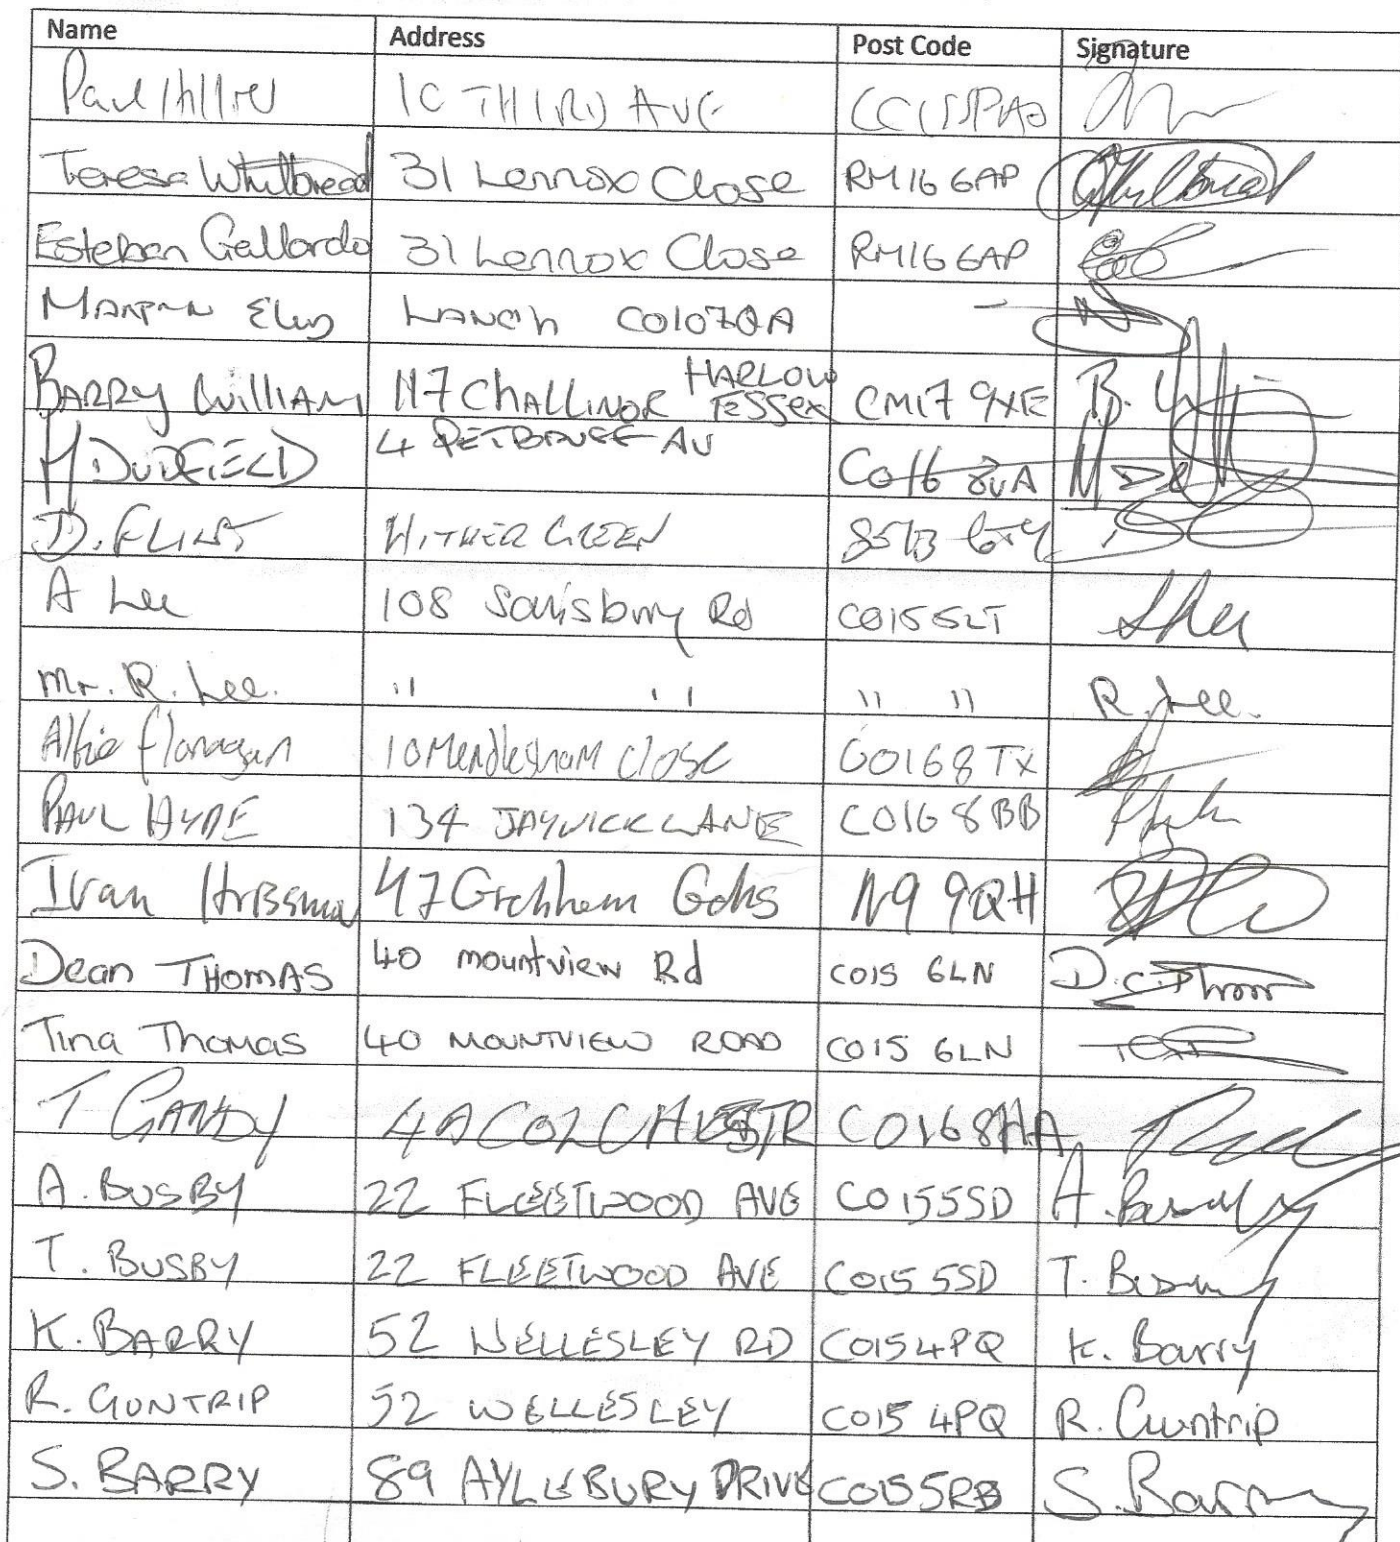 Name Address Post Code Signature
Paul Hillier 10 THIRD AVE
Teresa Whitbread 31 Lennox Close RM16 6AP
Esteban Gallardo 31 Lennox Close RM16 6AP
LANCH CO107QA
BARRY WILLIAM 117 CHALLINOR HARLOW ESSEX CM17 9XE B.
DUDFIELD 4 AV CO16 8UA
D. FLINT HITHER GREEN
A Lee 108 Salisbury Rd CO15 5LT ALee
Mr. R. Lee. " " " " R. Lee.
Alfie Flanagan 10 Mendlesham Close CO16 8TX
PAUL HYDE 134 JAYWICK LANE CO16 8BB
Ivan 47 Gdns N9 9QH
Dean THOMAS 40 mountview Rd CO15 6LN D.C.Thom
Tina Thomas 40 MOUNTVIEW ROAD CO15 6LN
T GANDY 4A COLCHESTR CO16 8HA
A. BUSBY 22 FLEETWOOD AVE CO15 5SD A. Busby
T. BUSBY 22 FLEETWOOD AVE CO15 5SD T. Busby
K. BARRY 52 WELLESLEY RD CO15 4PQ K. Barry
R. GUNTRIP 52 WELLESLEY CO15 4PQ R. Guntrip
S. BARRY 89 AYLESBURY DRIVE CO15 5RB S. Barry